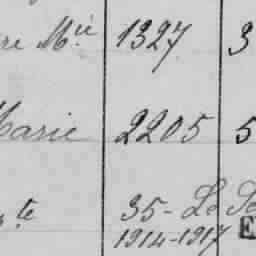 re Mie 1327 3
Marie 2205 5
te 35 - Le
1914-1917 E